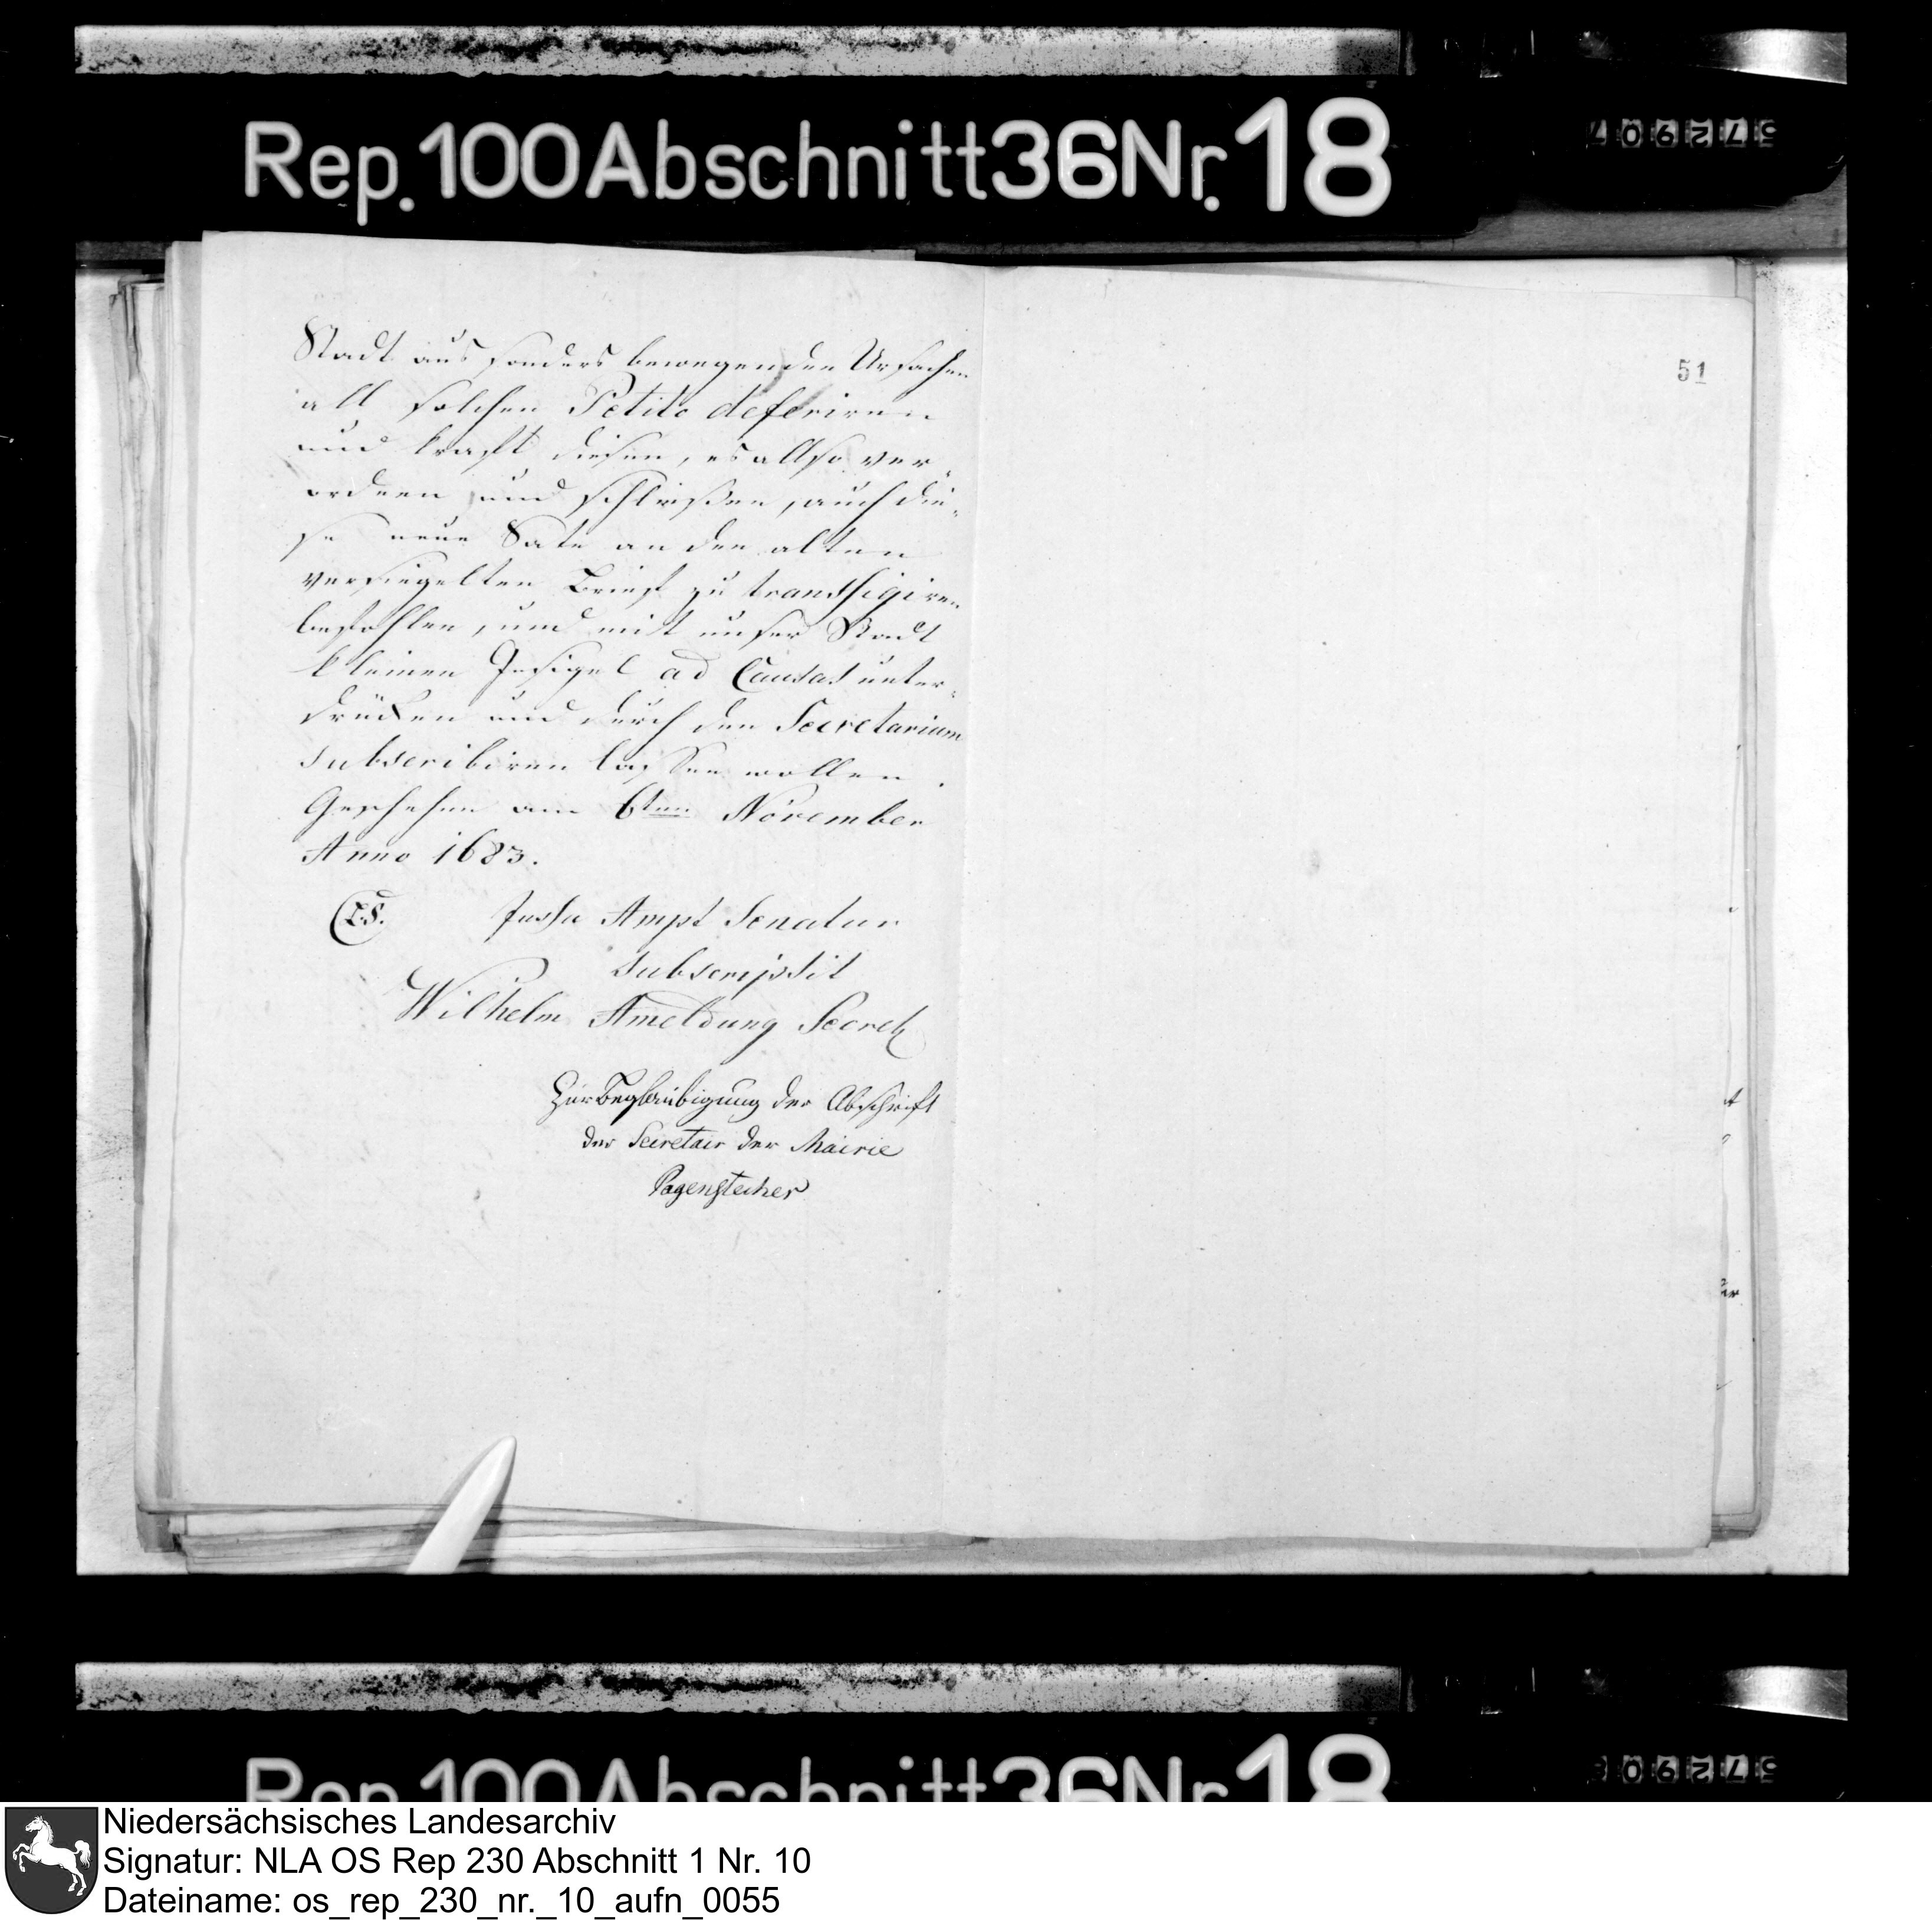 Rep. 100 Abschnitt 36 Nr. 18
51
Stadt aus sonders bewegenden Ursachen
all solchen Petito deferiren
und krafft diesen, es allso ver-
ordnen und schließen, auch die-
se neue Sate an den alten
versiegelten Brieff zu transfigiren
befohlen, und mit unser Stadt
kleinen Insigel ad Causas unter-
drücken und durch den Secretarium
subscribiren lassen wollen.
Geschehen am 6ten November
Anno 1683.
(L.S. Jussu Ampl Senatus
subscripsit
Wilhelm Ameldung Secret
Zur Beglaubigung der Abschrift
der Secretair der Mairie
Pagenstecher
Rep. 100 Abschnitt 36 Nr. 18
Niedersächsisches Landesarchiv
Signatur: NLA OS Rep 230 Abschnitt 1 Nr. 10
Dateiname: os_rep_230_nr._10_aufn_0055